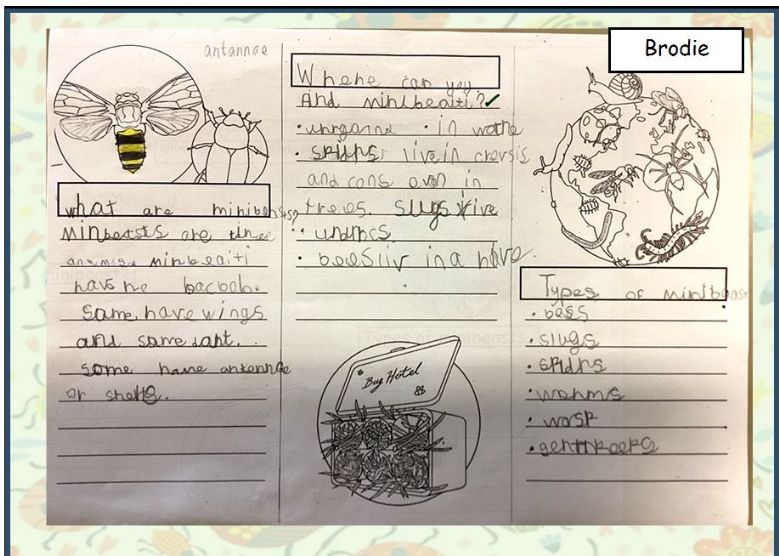 Brodie
antannae
what are minibeasts?
Minbeasts are tinee
animiss Minbeaiti
have no bacboh.
Some have wings
and some dant.
some have antennae
or shells.
Where can you
find minibeaiti?
• in
• spidrs live in crevsis
and cons even in
trees. slugs live
• beesliv in a hive
Bug Hotel
Types of minibeast
• bees
• slugs
• spidrs
• wahms
• wasp